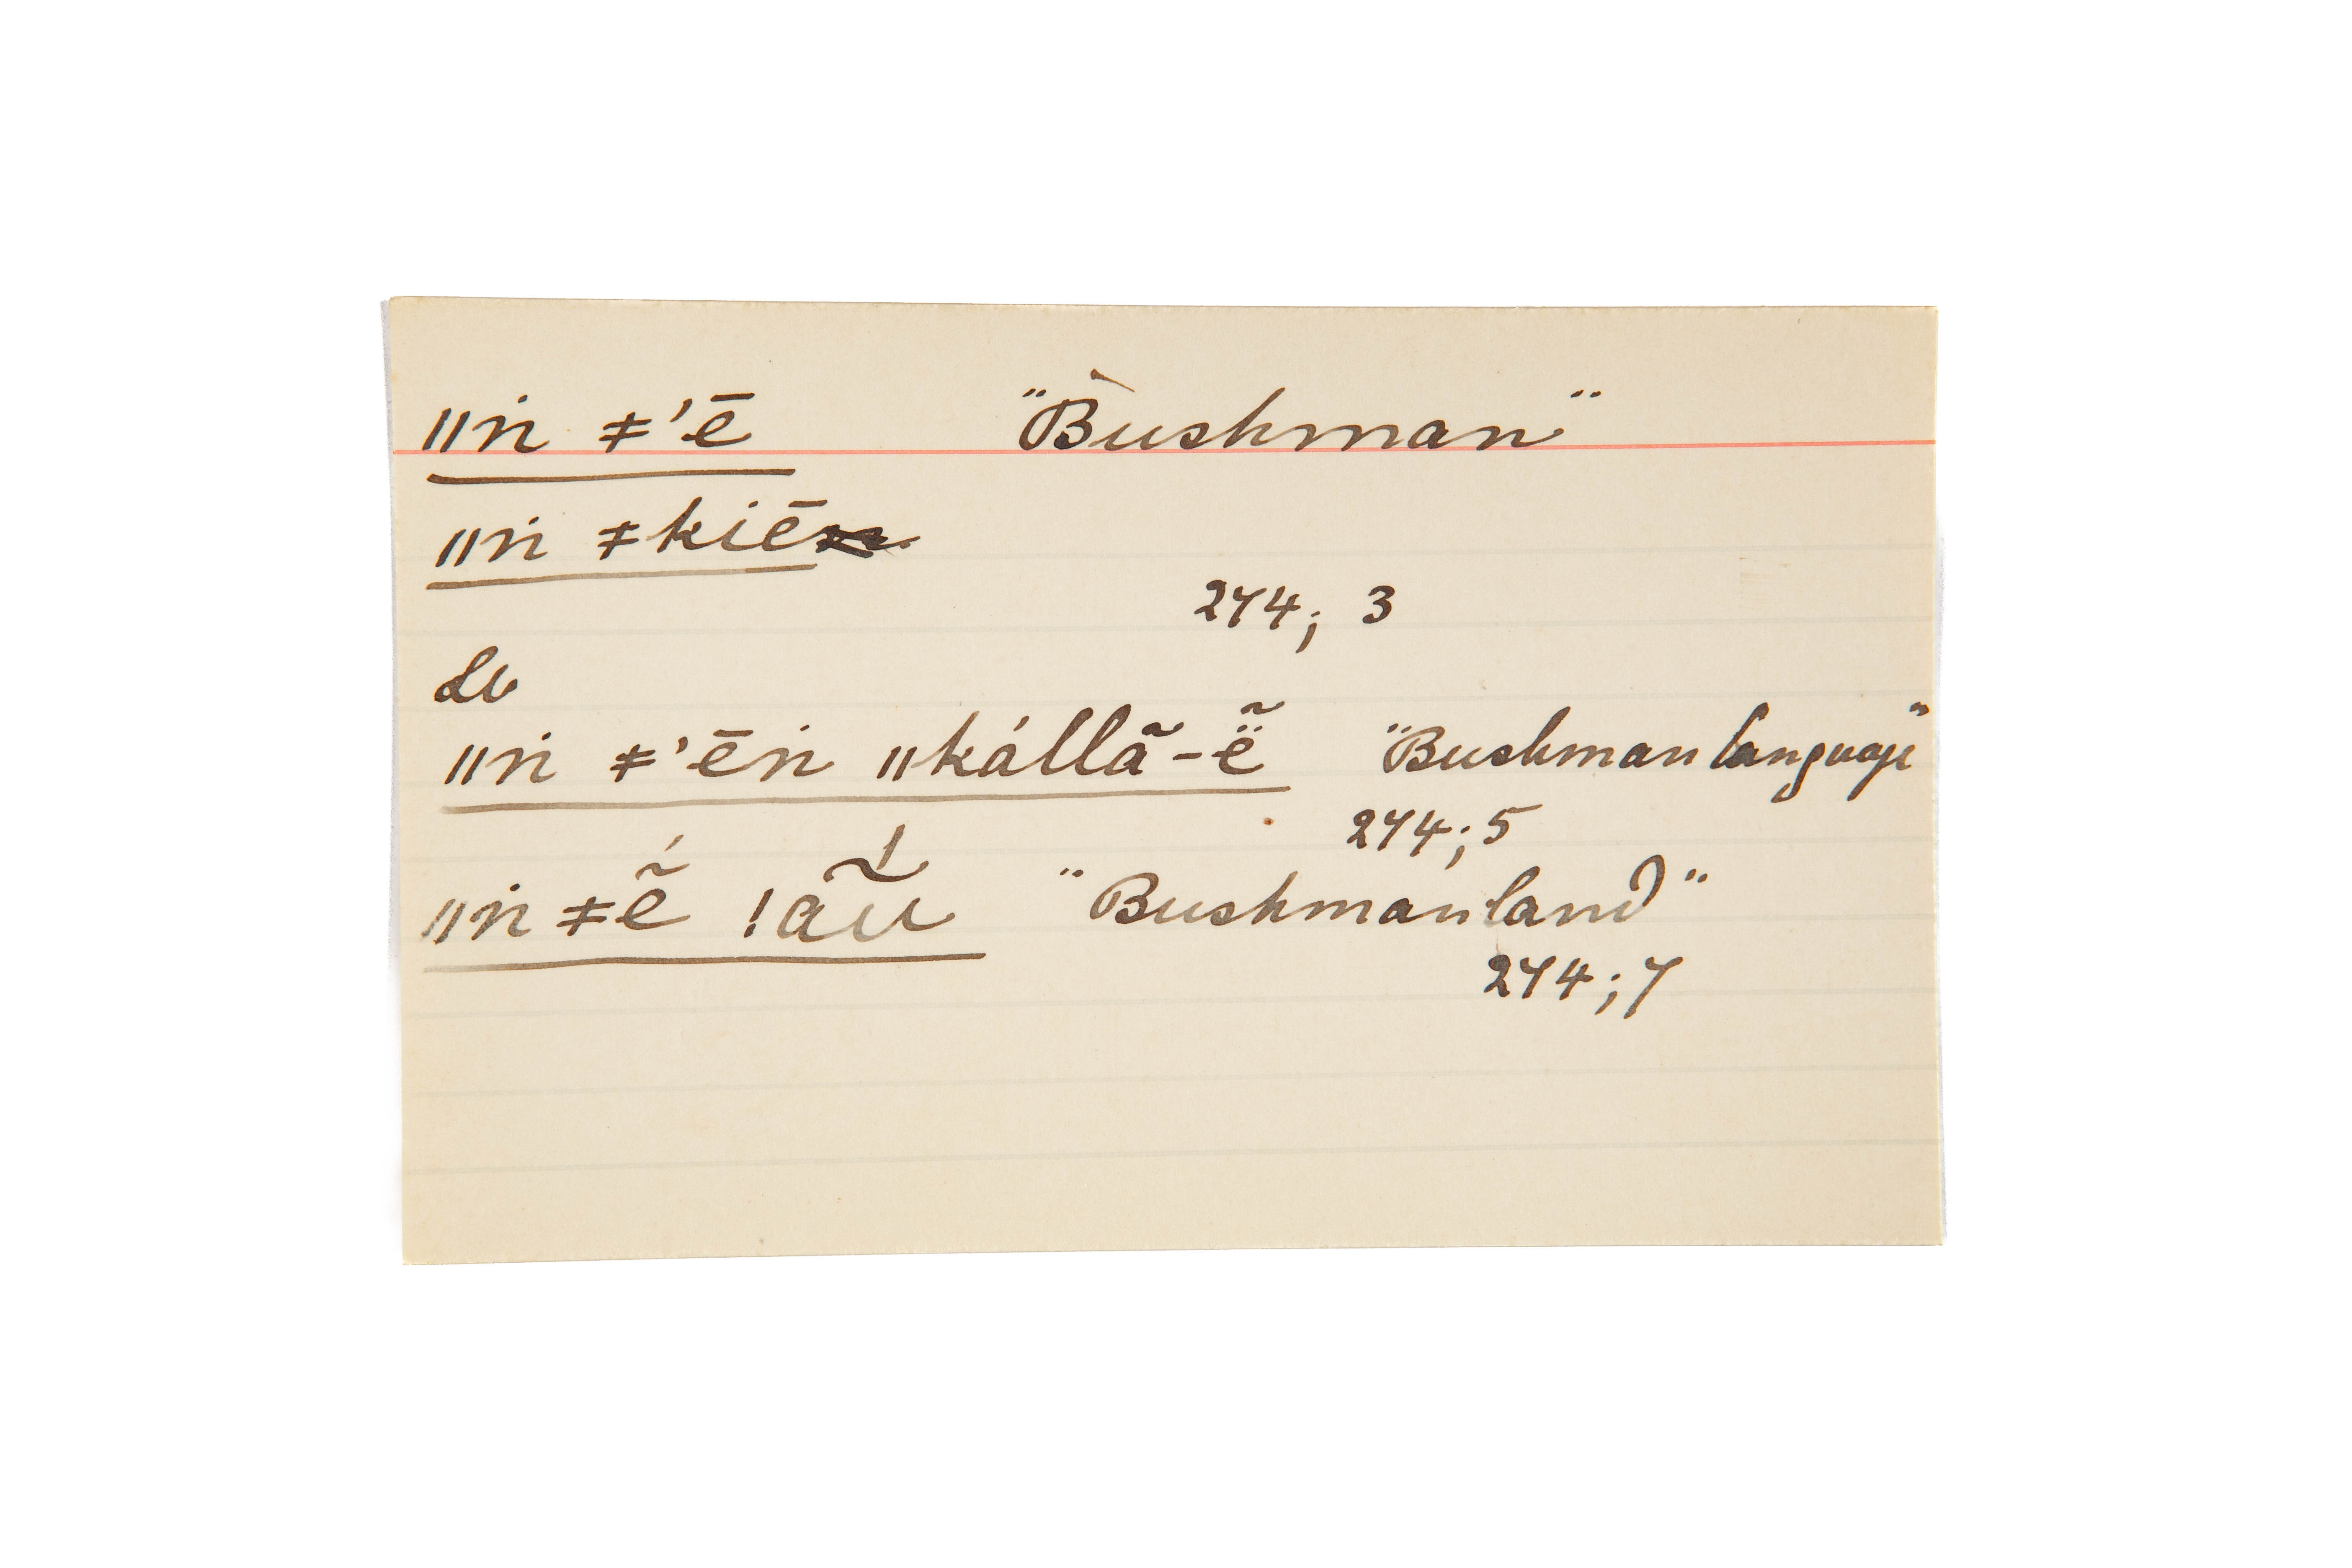 ǁṅ ǂ'ē "Bushman"
ǁṅ ǂkiē
274; 3
ǁṅ ǂ'ēṅ ǁkállã-ë̃ "Bushman language"
274; 5
ǁṅ ǂẽ́ !ãú̃ "Bushmanland"
274; 7